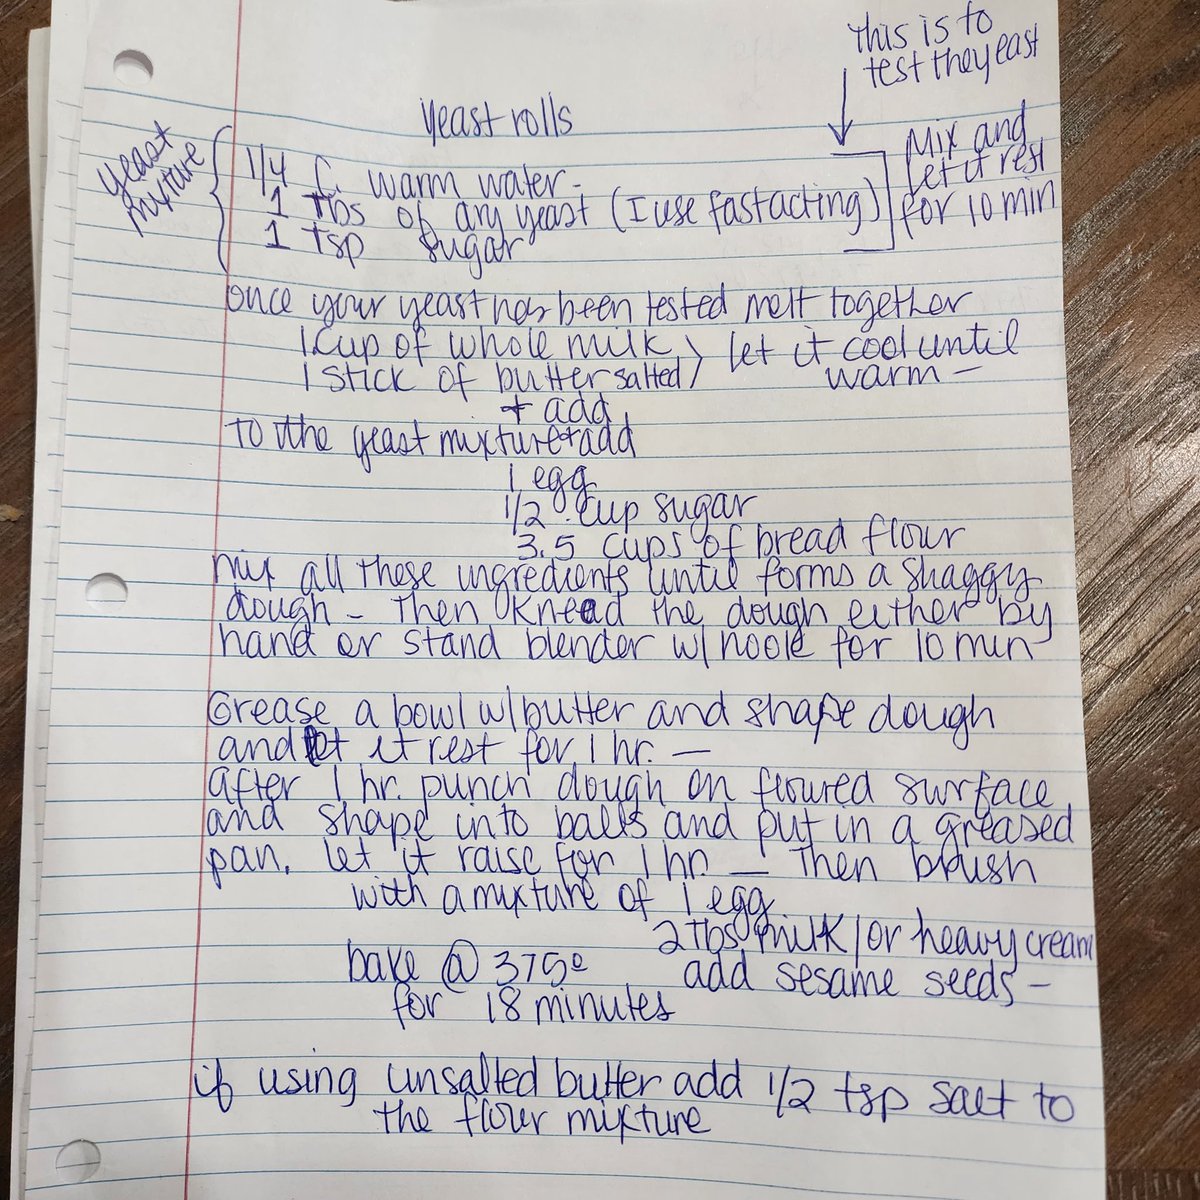 this is to
test they east
yeast rolls
yeast
mixture
1/4 C. warm water -
1 Tbs of any yeast (I use fast acting)
1 tsp sugar
Mix and
let it rest
for 10 min
once your yeast has been tested melt together
1 cup of whole milk
1 stick of butter salted
let it cool until
warm -
+ add
to the yeast mixture + add
1 egg
1/2 cup sugar
3.5 cups of bread flour
mix all these ingredients until forms a shaggy
dough - then knead the dough either by
hand or stand blender w/ hook for 10 min
Grease a bowl w/ butter and shape dough
and let it rest for 1 hr. -
after 1 hr. punch dough on floured surface
and shape into balls and put in a greased
pan. let it raise for 1 hr. - Then brush
with a mixture of 1 egg
2 Tbs milk/or heavy cream
bake @ 375º add sesame seeds -
for 18 minutes
if using unsalted butter add 1/2 tsp salt to
the flour mixture